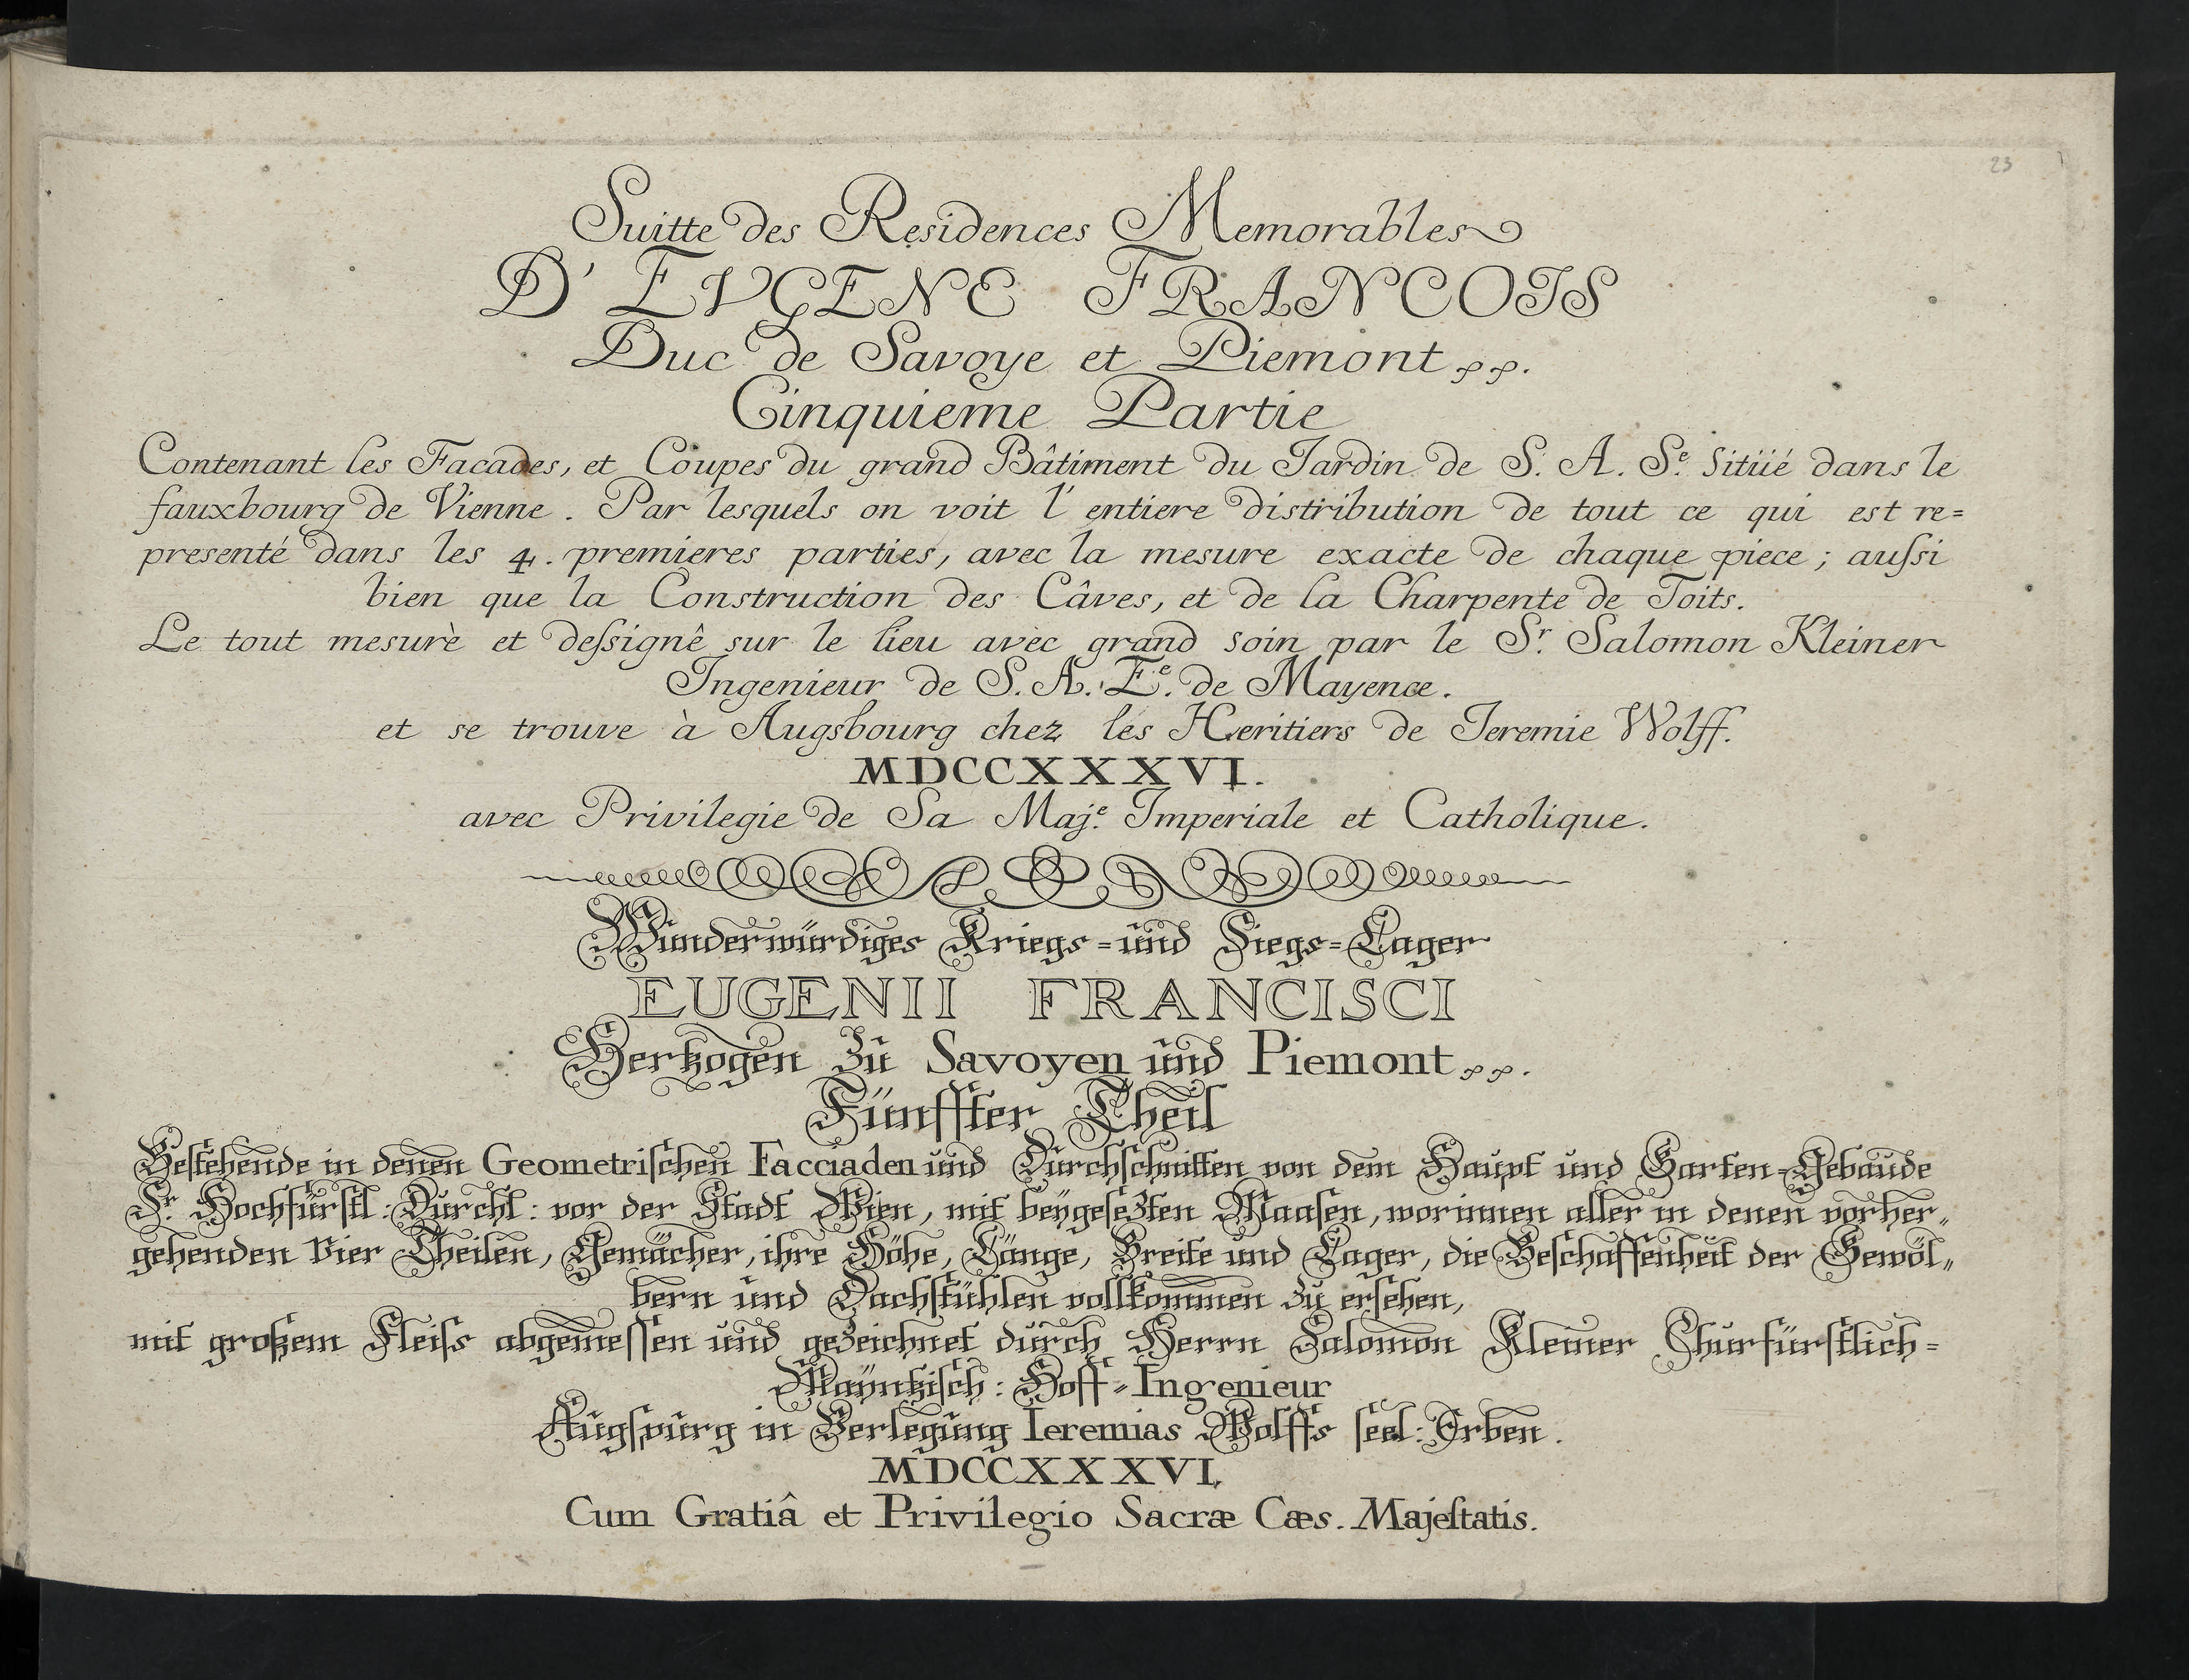 23
Suitte des Residences Memorables
D' EVGENE FRANCOIS
Duc de Savoye et Piemont pp.
Cinquieme Partie
Contenant les Facades, et Coupes du grand Bâtiment du Jardin de S. A. Se. Sitüé dans le
fauxbourg de Vienne. Par lesquels on voit l' entiere distribution de tout ce qui est re=
presenté dans les 4. premieres parties, avec la mesure exacte de chaque piece; aussi
bien que la Construction des Câves, et de la Charpente de Toits.
Le tout mesurè et dessignê sur le lieu avec grand soin par le Sr. Salomon Kleiner
Ingenieur de S. A. Ee. de Mayence.
et se trouve à Augsbourg chez les Heritiers de Jeremie Wolff.
MDCCXXXVI.
avec Privilegie de Sa Maje. Imperiale et Catholique.
Wunderwürdiges Kriegs=und Siegs=Lager
EUGENII FRANCISCI
Hertzogen zu Savoyen und Piemont pp.
Fünffter Theil
Bestehende in denen Geometrischen Facciaden und Durchschnitten von dem Haupt und Garten=Gebaude
Sr. Hochfürstl: Durchl: vor der Stadt Wien, mit beÿgesezten Maasen, worinnen aller in denen vorher„
gehenden vier Theilen, Gemächer, ihre Höhe, Länge, Breite und Lager, die Beschaffenheit der Gewöl„
bern und Dachstühlen vollkommen zu ersehen,
mit großem Fleiss abgemessen und gezeichnet durch Herrn Salomon Kleiner Churfürstlich=
Maÿntzisch: Hoff=Ingenieur
Augspurg in Verlegung Ieremias Wolffs seel: Erben.
MDCCXXXVI.
Cum Gratiâ et Privilegio Sacræ Cæs. Majestatis.